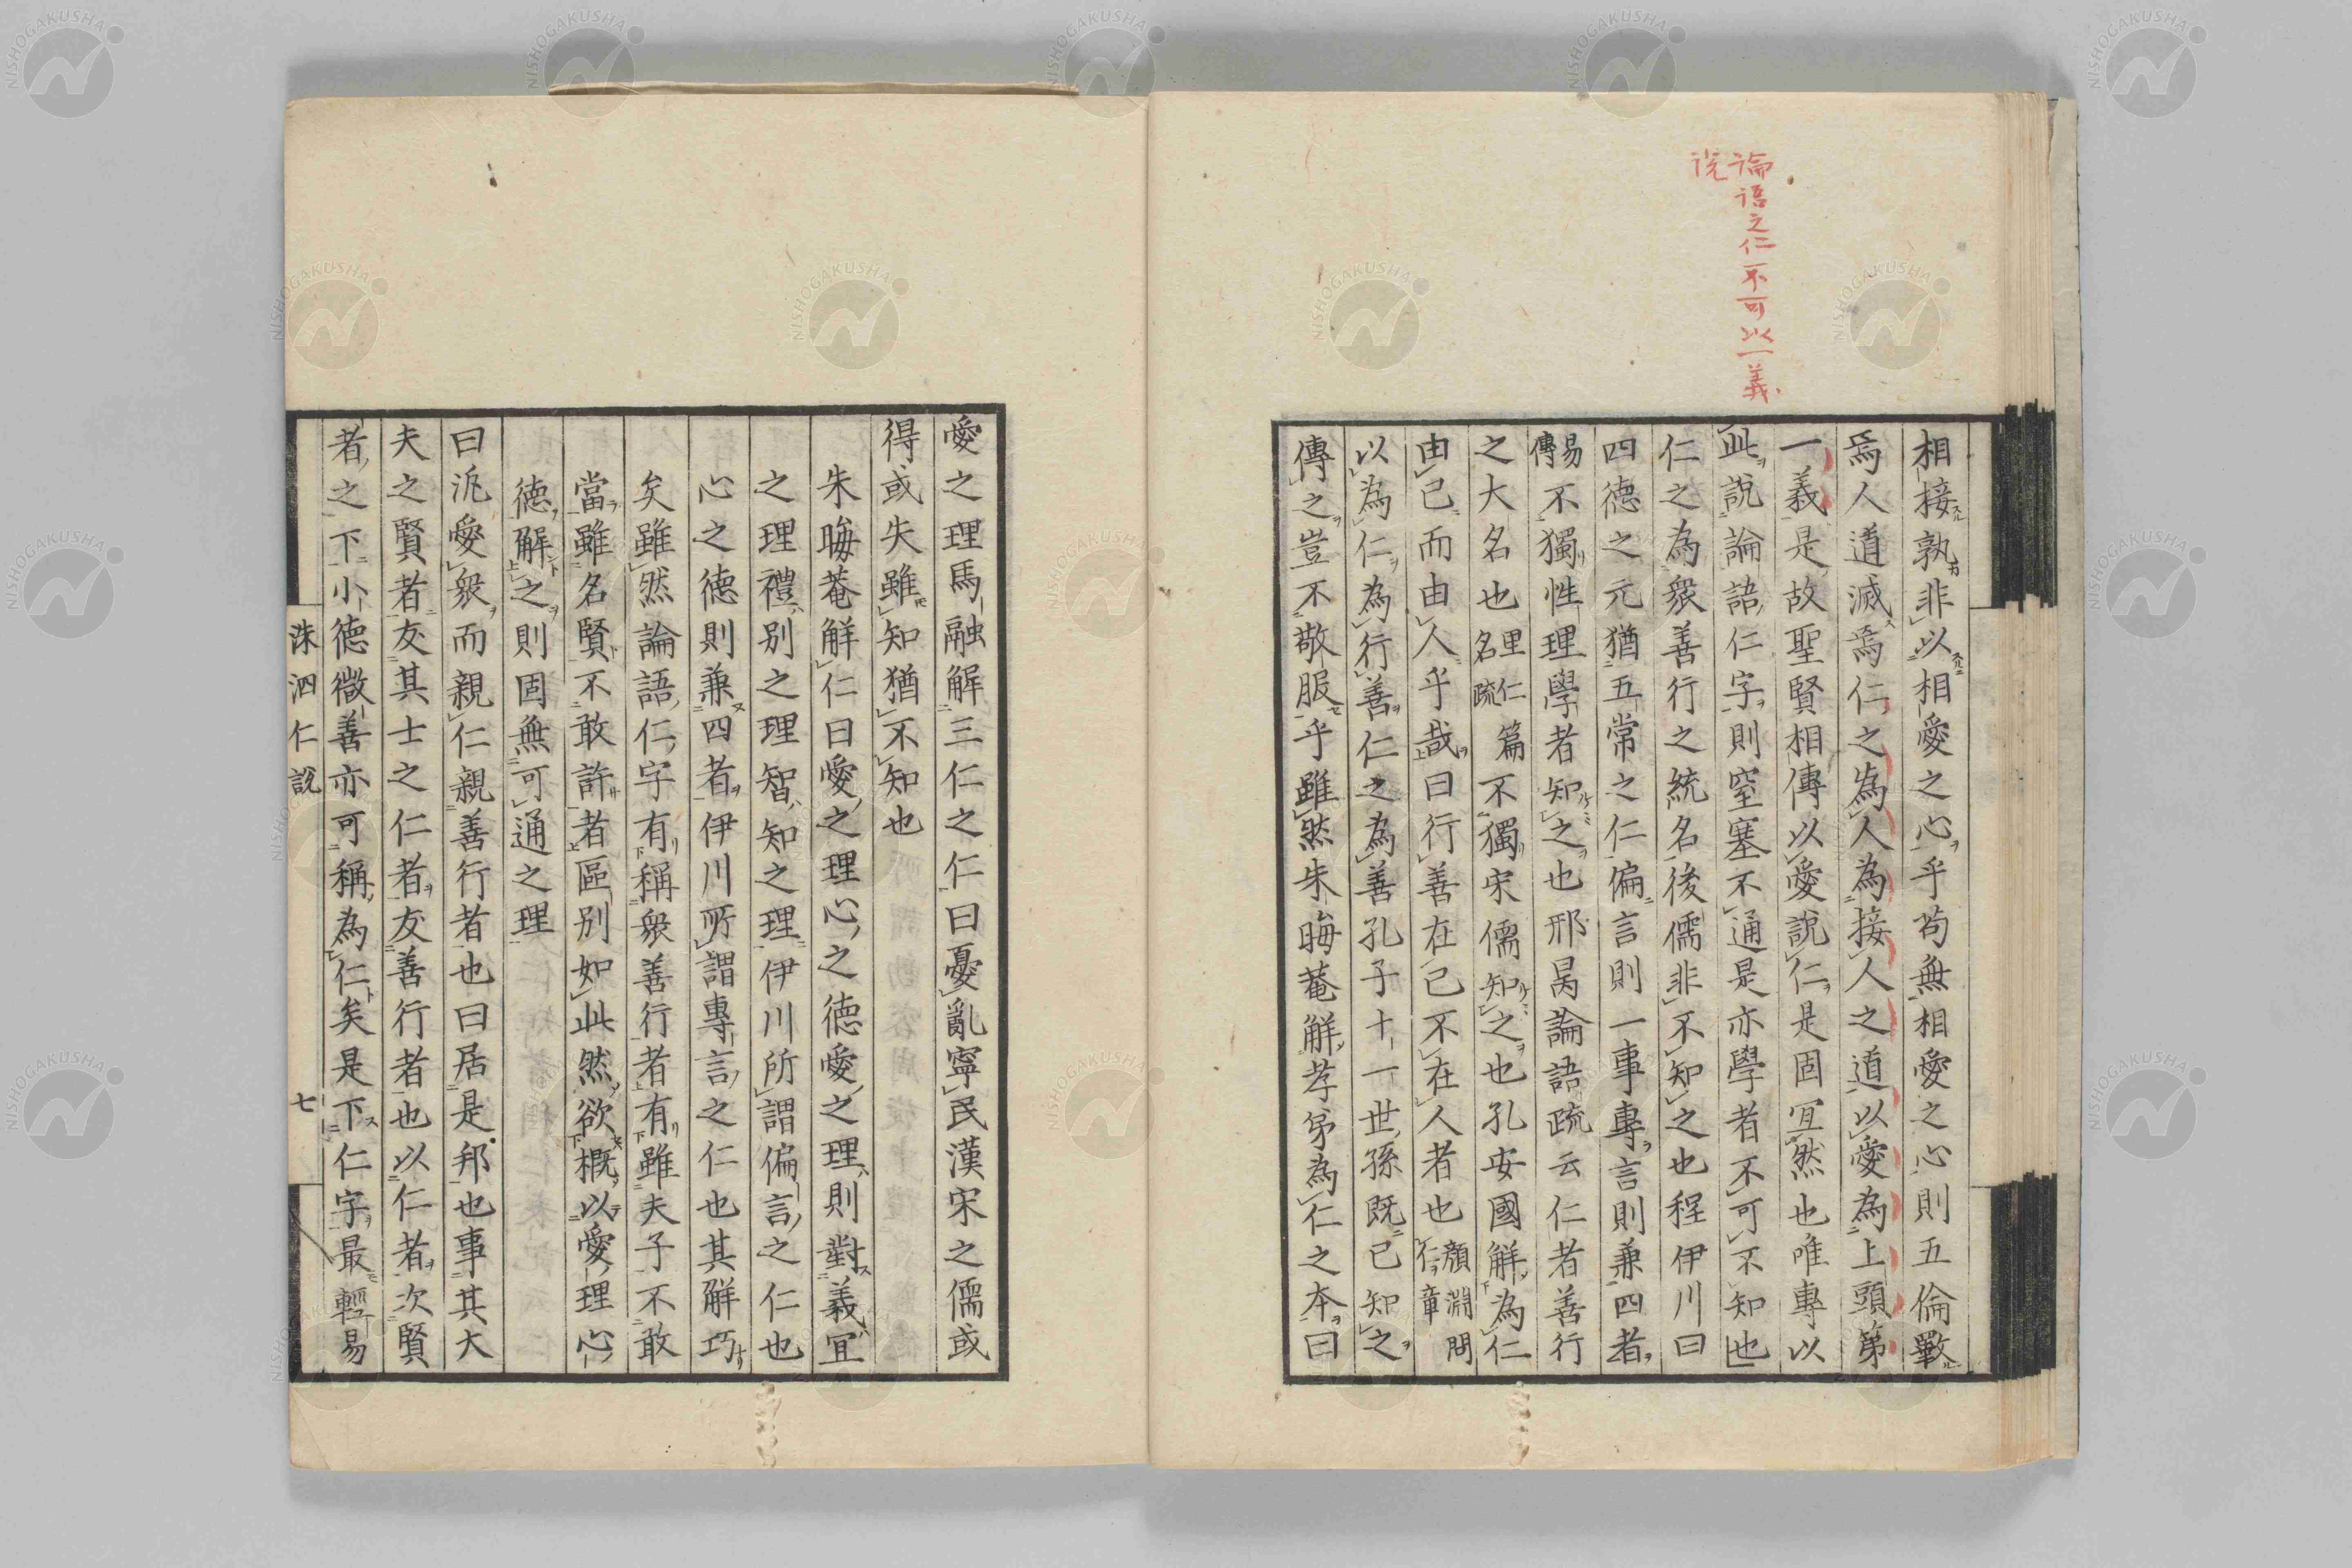 論語之仁不可以一義
説
相接孰非以相愛之心乎苟無相愛之心則五倫斁
焉人道滅焉仁之為人為接人之道以愛為上頭第
一義是故聖賢相傳以愛説仁是固宜然也唯專以
此説論語仁字則窒塞不通是亦學者不可不知也
仁之為衆善行之統名後儒非不知之也程伊川曰
四德之元猶五常之仁偏言則一事專言則兼四者
易傳不獨性理學者知之也邢昺論語疏云仁者善行
之大名也里仁篇名疏不獨宋儒知之也孔安國解為仁
由己而由人乎哉曰行善在己不在人者也顏淵問仁章
以為仁為行善仁之為善孔子十一世孫既已知之
傳之豈不敬服乎雖然朱晦菴解孝弟為仁之本曰
愛之理馬融解三仁之仁曰憂亂寧民漢宋之儒或
得或失雖知猶不知也
朱晦菴解仁曰愛之理心之德愛之理則對義宜
之理禮別之理智知之理伊川所謂偏言之仁也
心之德則兼四者伊川所謂專言之仁也其解巧
矣雖然論語仁字有稱衆善行者有雖夫子不敢
當雖名賢不敢許者區別如此然欲概以愛理心
德解之則固無可通之理
曰汎愛衆而親仁親善行者也曰居是邦也事其大
夫之賢者友其士之仁者友善行者也以仁者次賢
者之下小德微善亦可稱為仁矣是下仁字最輕易
洙泗仁説
七
NISHOGAKUSHA